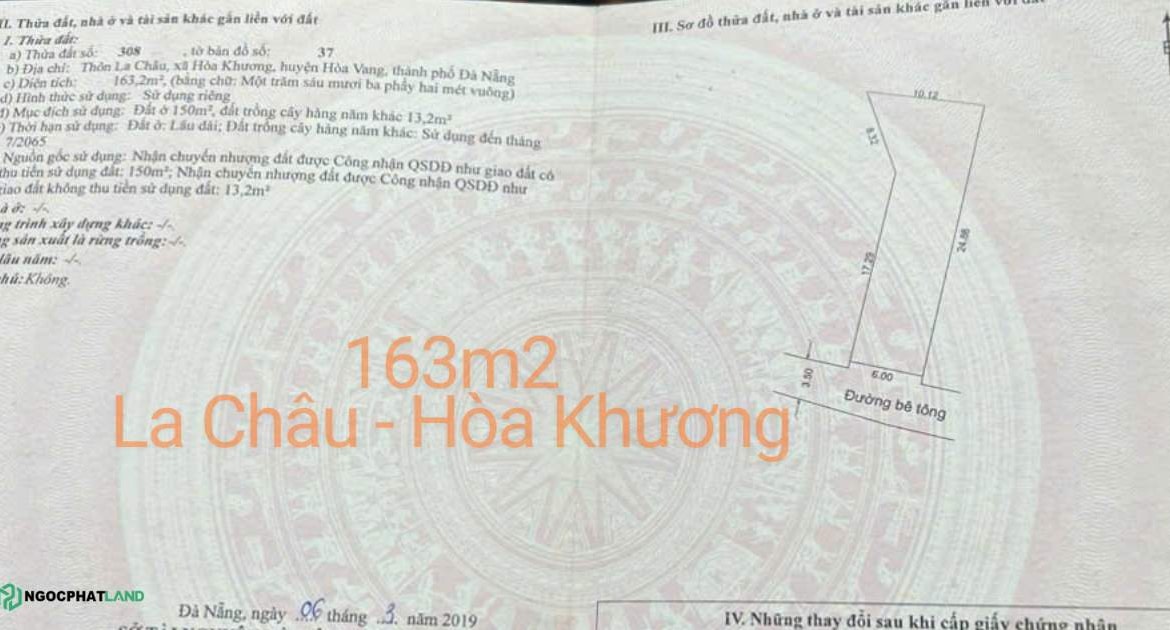 II. Thửa đất, nhà ở và tài sản khác gắn liền với đất
1. Thửa đất:
a) Thửa đất số: 308 , tờ bản đồ số: 37
b) Địa chỉ: Thôn La Châu, xã Hòa Khương, huyện Hòa Vang, thành phố Đà Nẵng
c) Diện tích: 163,2m², (bằng chữ: Một trăm sáu mươi ba phẩy hai mét vuông)
d) Hình thức sử dụng: Sử dụng riêng
đ) Mục đích sử dụng: Đất ở 150m², đất trồng cây hàng năm khác 13,2m²
) Thời hạn sử dụng: Đất ở: Lâu dài; Đất trồng cây hàng năm khác: Sử dụng đến tháng
7/2065
Nguồn gốc sử dụng: Nhận chuyển nhượng đất được Công nhận QSDĐ như giao đất có
thu tiền sử dụng đất: 150m²; Nhận chuyển nhượng đất được Công nhận QSDĐ như
giao đất không thu tiền sử dụng đất: 13,2m²
à ở: -/-.
ng trình xây dựng khác: -/-.
g sản xuất là rừng trồng: -/-.
lâu năm: -/-.
hú: Không.
III. Sơ đồ thửa đất, nhà ở và tài sản khác gắn liền với đất
10.12
8.32
17.29
24.86
6.00
3.50
Đường bê tông
163m2
La Châu - Hòa Khương
NGOCPHATLAND
Đà Nẵng, ngày 06 tháng 3 năm 2019
IV. Những thay đổi sau khi cấp giấy chứng nhận